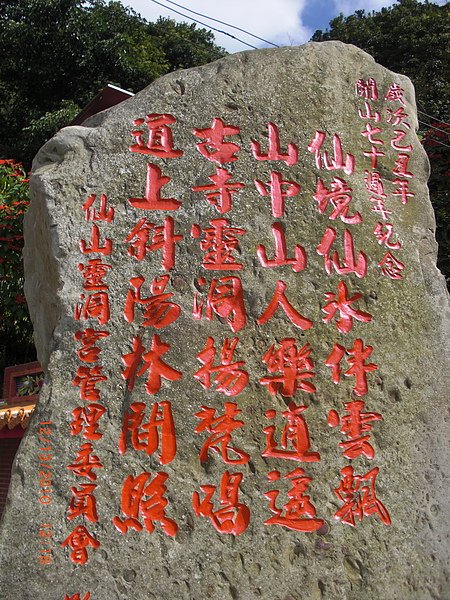 歲次己丑年
開山七十週年紀念
仙境仙水伴雲飄
山中山人樂逍遙
古寺靈洞揚梵唱
道上斜陽林間照
仙山靈洞宮管理委員會